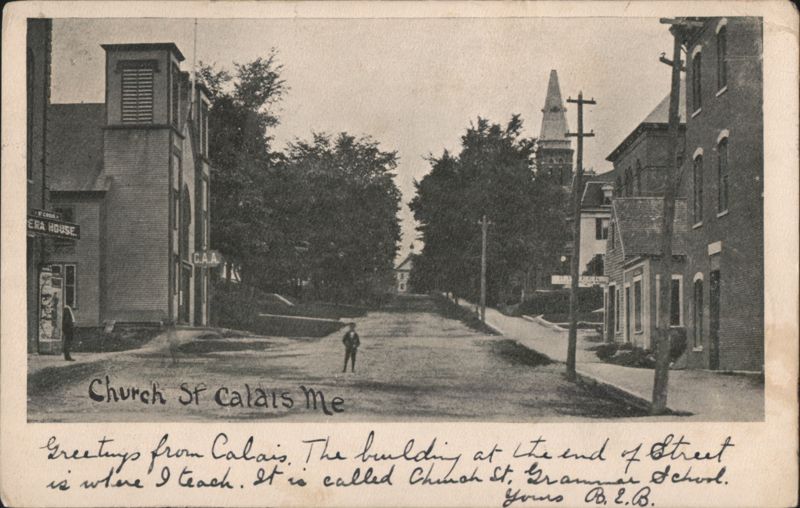 St CROIX
ERA HOUSE.
C.A.A.
Church St Calais Me
Greetings from Calais. The building at the end of Street
is where I teach. It is called Church St. Grammar School.
Yours B.E.B.